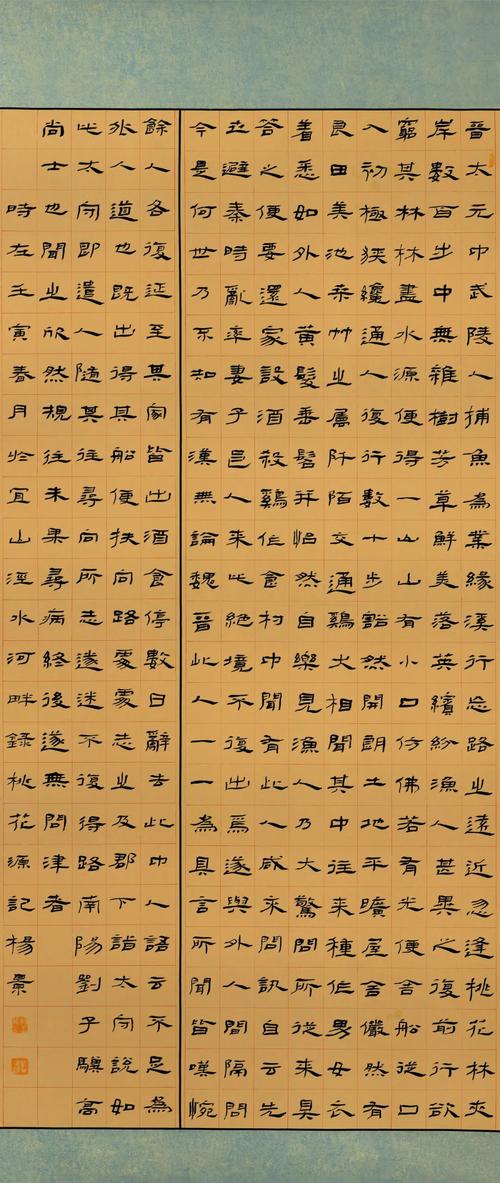 晉太元中武陵人捕魚為業緣溪行忘路之遠近忽逢桃花林夾
岸數百步中無雜樹芳草鮮美落英繽紛漁人甚異之復前行欲
窮其林林盡水源便得一山山有小口仿佛若有光便舍船從口
入初極狹纔通人復行數十步豁然開朗土地平曠屋舍儼然有
良田美池桑竹之屬阡陌交通鷄犬相聞其中往來種作男女衣
着悉如外人黃髮垂髫并怡然自樂見漁人乃大驚問所從來具
答之便要還家設酒殺鷄作食村中聞有此人咸來問訊自云先
世避秦時亂率妻子邑人來此絕境不復出焉遂與外人間隔問
今是何世乃不知有漢無論魏晉此人一一為具言所聞皆嘆惋
餘人各復延至其家皆出酒食停數日辭去此中人語云不足為
外人道也既出得其船便扶向路處處志之及郡下詣太守說如
此太守即遣人隨其往尋向所志遂迷不復得路南陽劉子驥高
尚士也聞之欣然規往未果尋病終後遂無問津者
時在壬寅春月於宜山涇水河畔錄桃花源記楊景